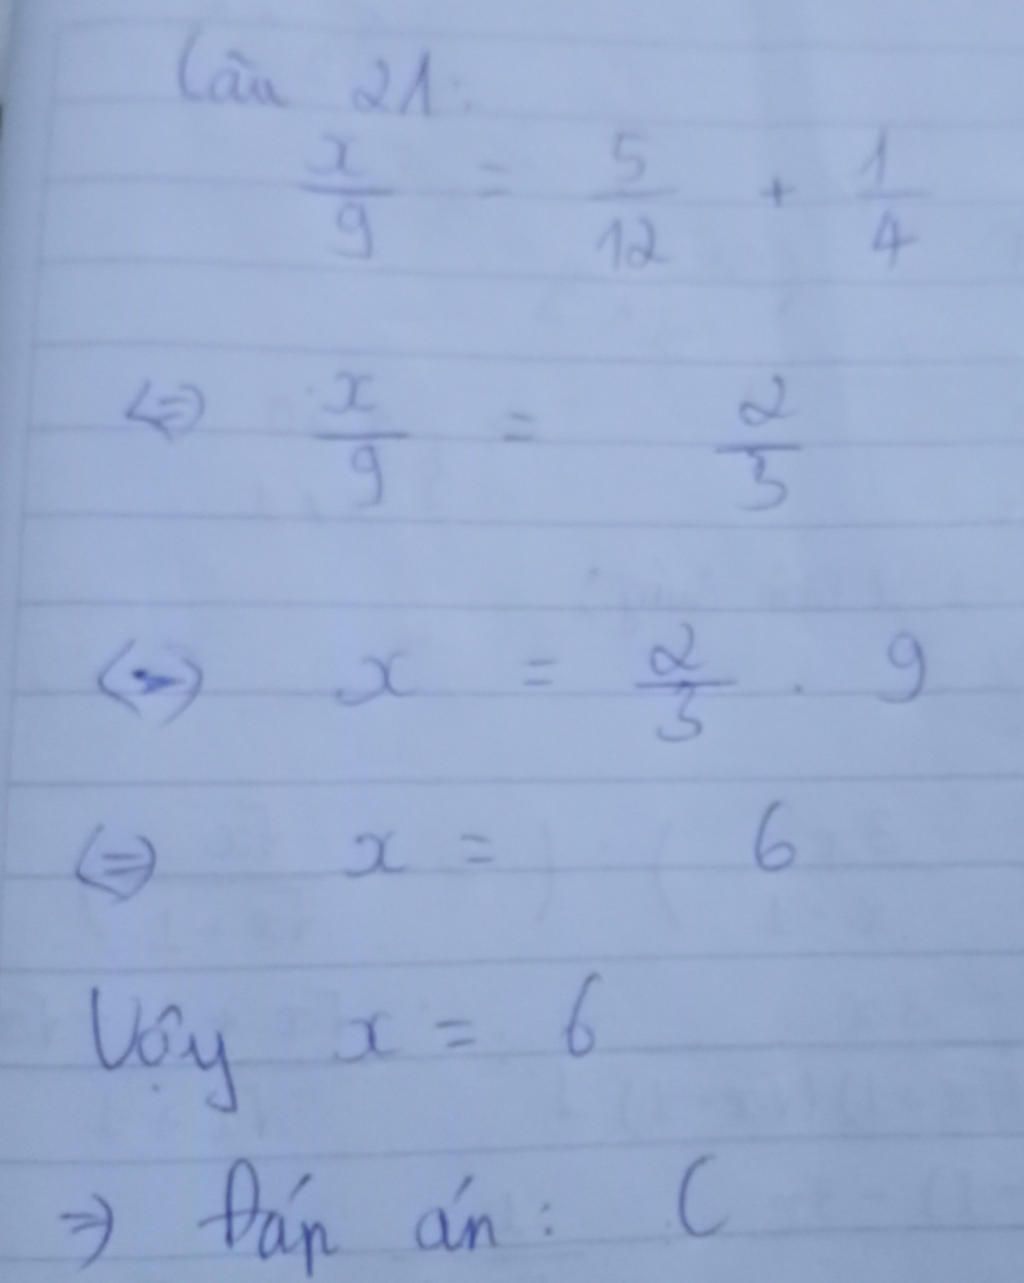 Câu 21:
x/9 = 5/12 + 1/4
⇔ x/9 = 2/3
⇔ x = 2/3 . 9
⇔ x = 6
Vậy x = 6
⇒ Đáp án: C